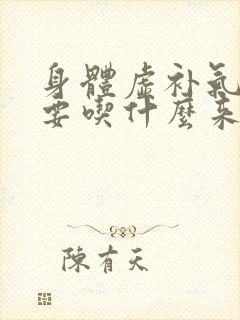 身體虛补氣
要喫什麼來
陳有天